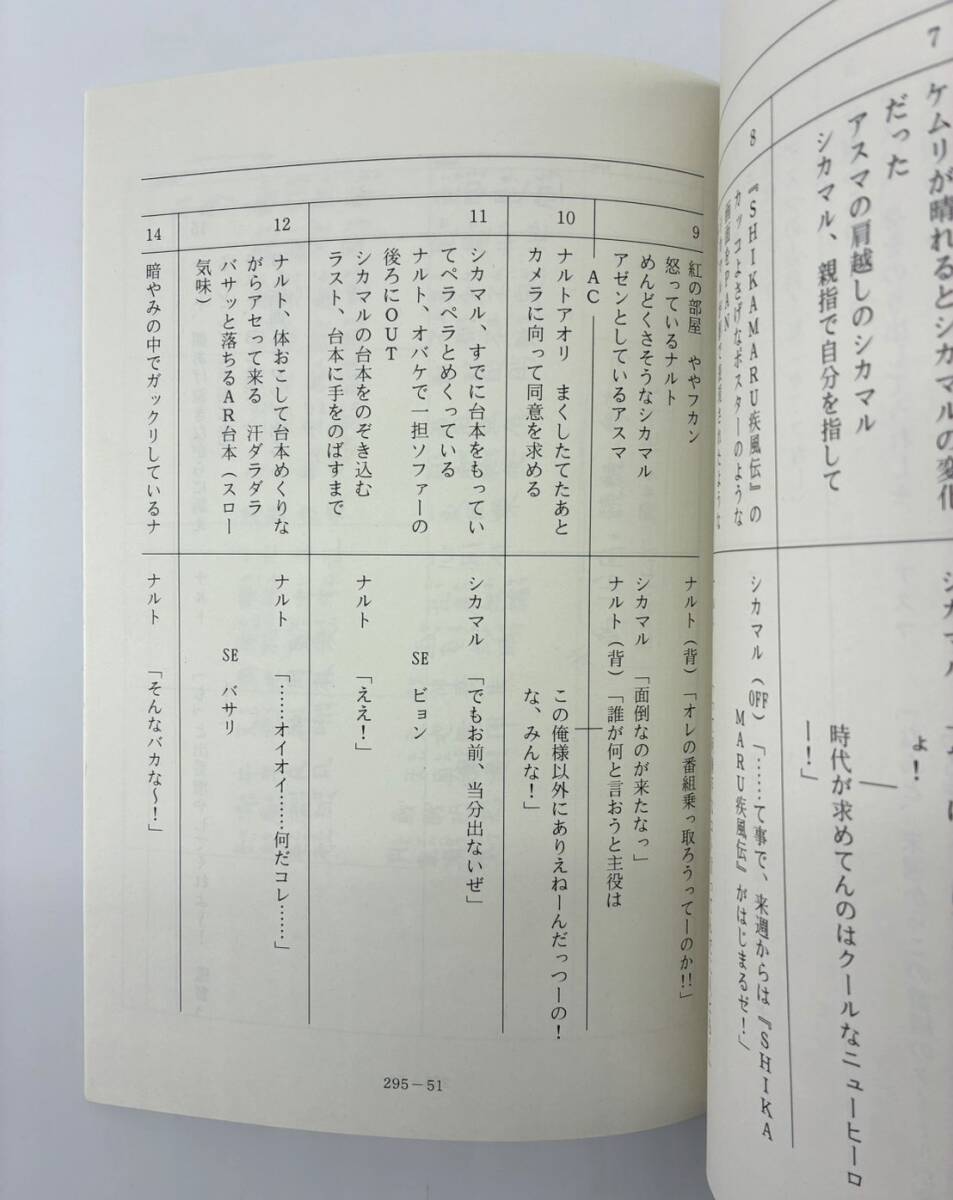 7
ケムリが晴れるとシカマルの変化
だった
アスマの肩越しのシカマル
シカマル、親指で自分を指して
ょ!
時代が求めてんのはクールなニューヒーロ
ー!」
8
『SHIKAMARU疾風伝』の
カッコよさげなポスターのような
画面をPAN
シカマル(OFF)「……て事で、来週からは『SHIKA
MARU疾風伝』がはじまるゼ!」
9
紅の部屋 ややフカン
怒っているナルト
めんどくさそうなシカマル
アゼンとしているアスマ
AC
ナルト(背)「オレの番組乗っ取ろうってーのか!!」
シカマル 「面倒なのが来たなっ」
ナルト(背)「誰が何と言おうと主役は
10
ナルトアオリ まくしたてたあと
カメラに向って同意を求める
この俺様以外にありえねーんだっつーの!
な、みんな!」
11
シカマル、すでに台本をもってい
てペラペラとめくっている
ナルト、オバケで一担ソファーの
後ろにOUT
シカマルの台本をのぞき込む
ラスト、台本に手をのばすまで
シカマル 「でもお前、当分出ないぜ」
SE ビョン
ナルト 「ええ!」
12
ナルト、体おこして台本めくりな
がらアセって来る 汗ダラダラ
バサッと落ちるAR台本(スロー
気味)
ナルト 「……オイオイ……何だコレ……」
SE バサリ
14
暗やみの中でガックリしているナ
ナルト 「そんなバカな〜!」
295－51